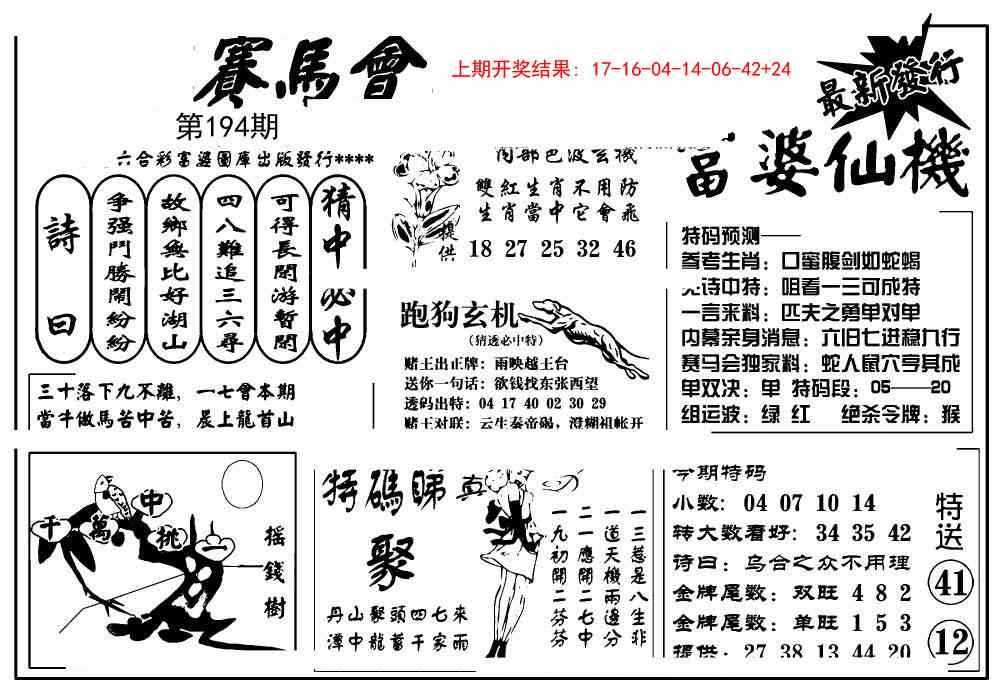 賽馬會
第194期
上期开奖结果：17-16-04-14-06-42+24
最新發行
富婆仙機
六合彩富婆圖庫出版發行****
猜中必中
可得長閒游暫閒
四八難追三六尋
故鄉無比好湖山
爭强鬥勝鬧紛紛
詩曰
三十落下九不離，一七會本期
當牛做馬苦中苦，晨上龍首山
内部色波玄機
雙紅生肖不用防
生肖當中它會飛
提供
18 27 25 32 46
跑狗玄机
(猜透必中特)
赌王出正牌：雨映越王台
送你一句话：欲钱找东张西望
透码出特：04 17 40 02 30 29
赌王对联：云生秦帝碣，澄糊祖帐开
特码预测——
参考生肖：口蜜腹剑如蛇蝎
诗中特：咀着一三可成特
一言来料：匹夫之勇单对单
内幕亲身消息：六旧七进稳九行
赛马会独家料：蛇人鼠穴亨其成
单双决：单 特码段：05——20
组运波：绿 红 绝杀令牌：猴
千萬中挑一
摇錢樹
特碼睇真
聚
丹山聚頭四七來
潭中龍蓄千家雨
一三惹是八生非
一道天機兩邊分
二一應開二七中
一九初開二芬芬
今期特码
小数：04 07 10 14
转大数看好：34 35 42
诗曰：乌合之众不用理
金牌尾数：双旺 4 8 2
金牌尾数：单旺 1 5 3
提供：27 38 13 44 20
特送
41
12